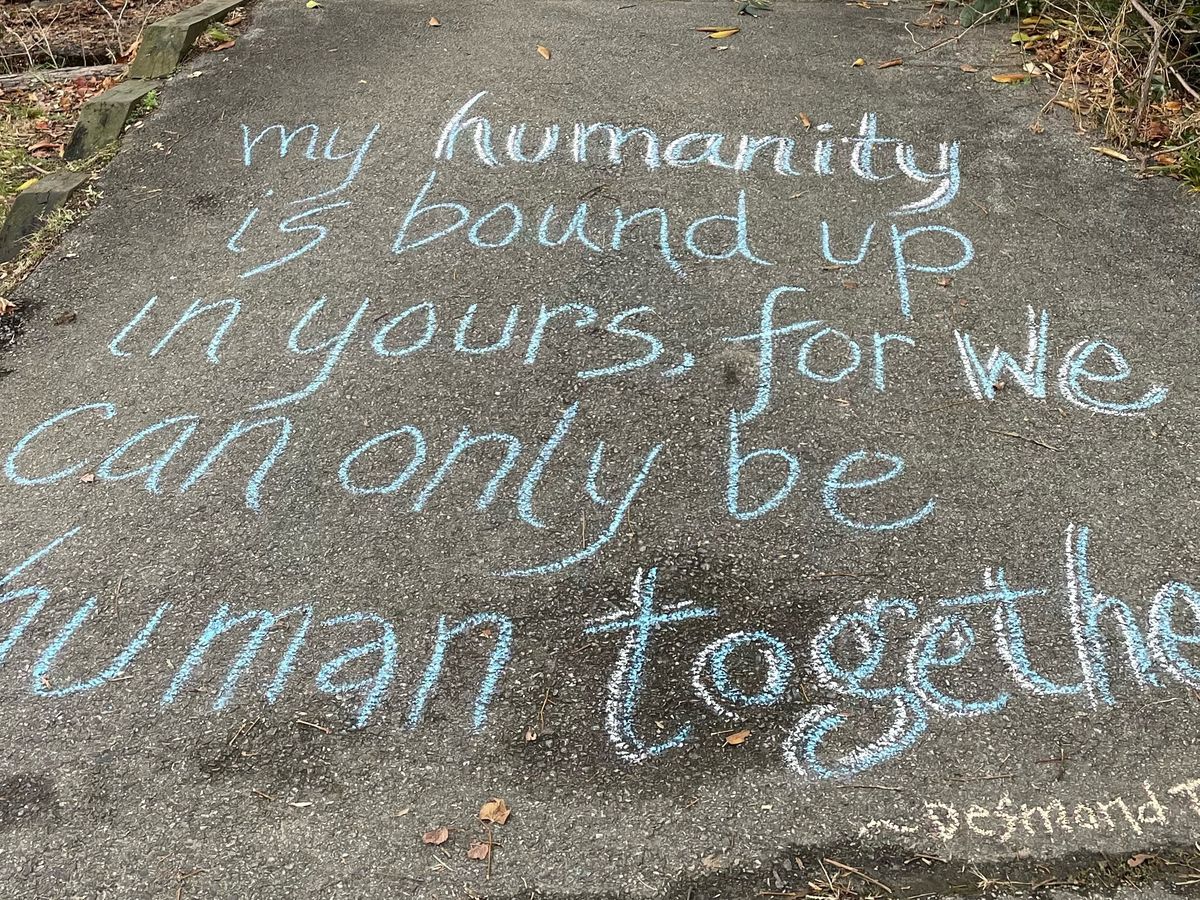 my humanity
is bound up
in yours, for we
can only be
human togethe
~Desmond T